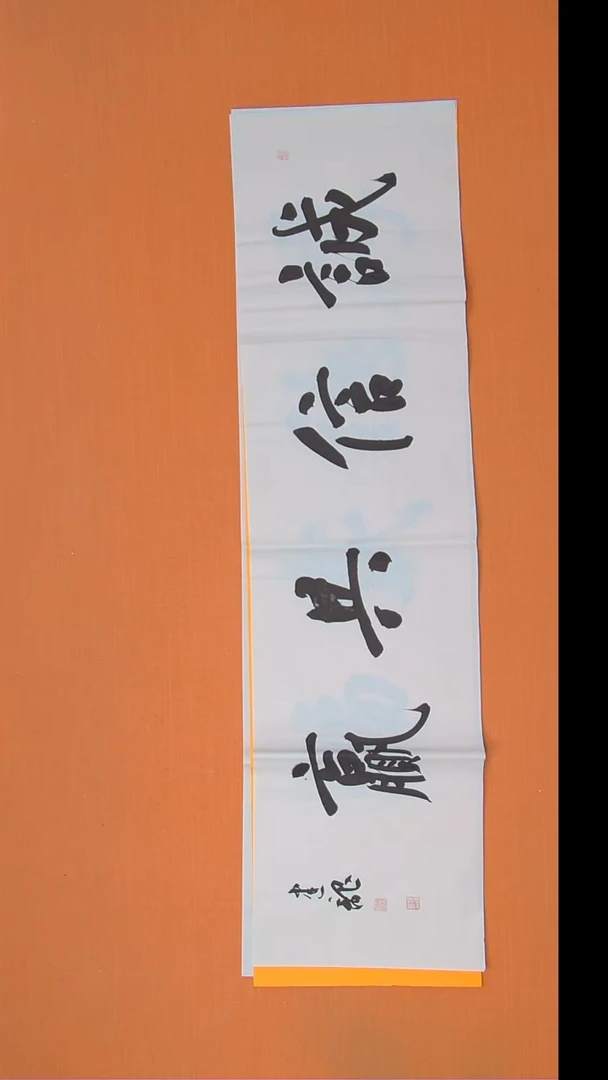 誠信共贏